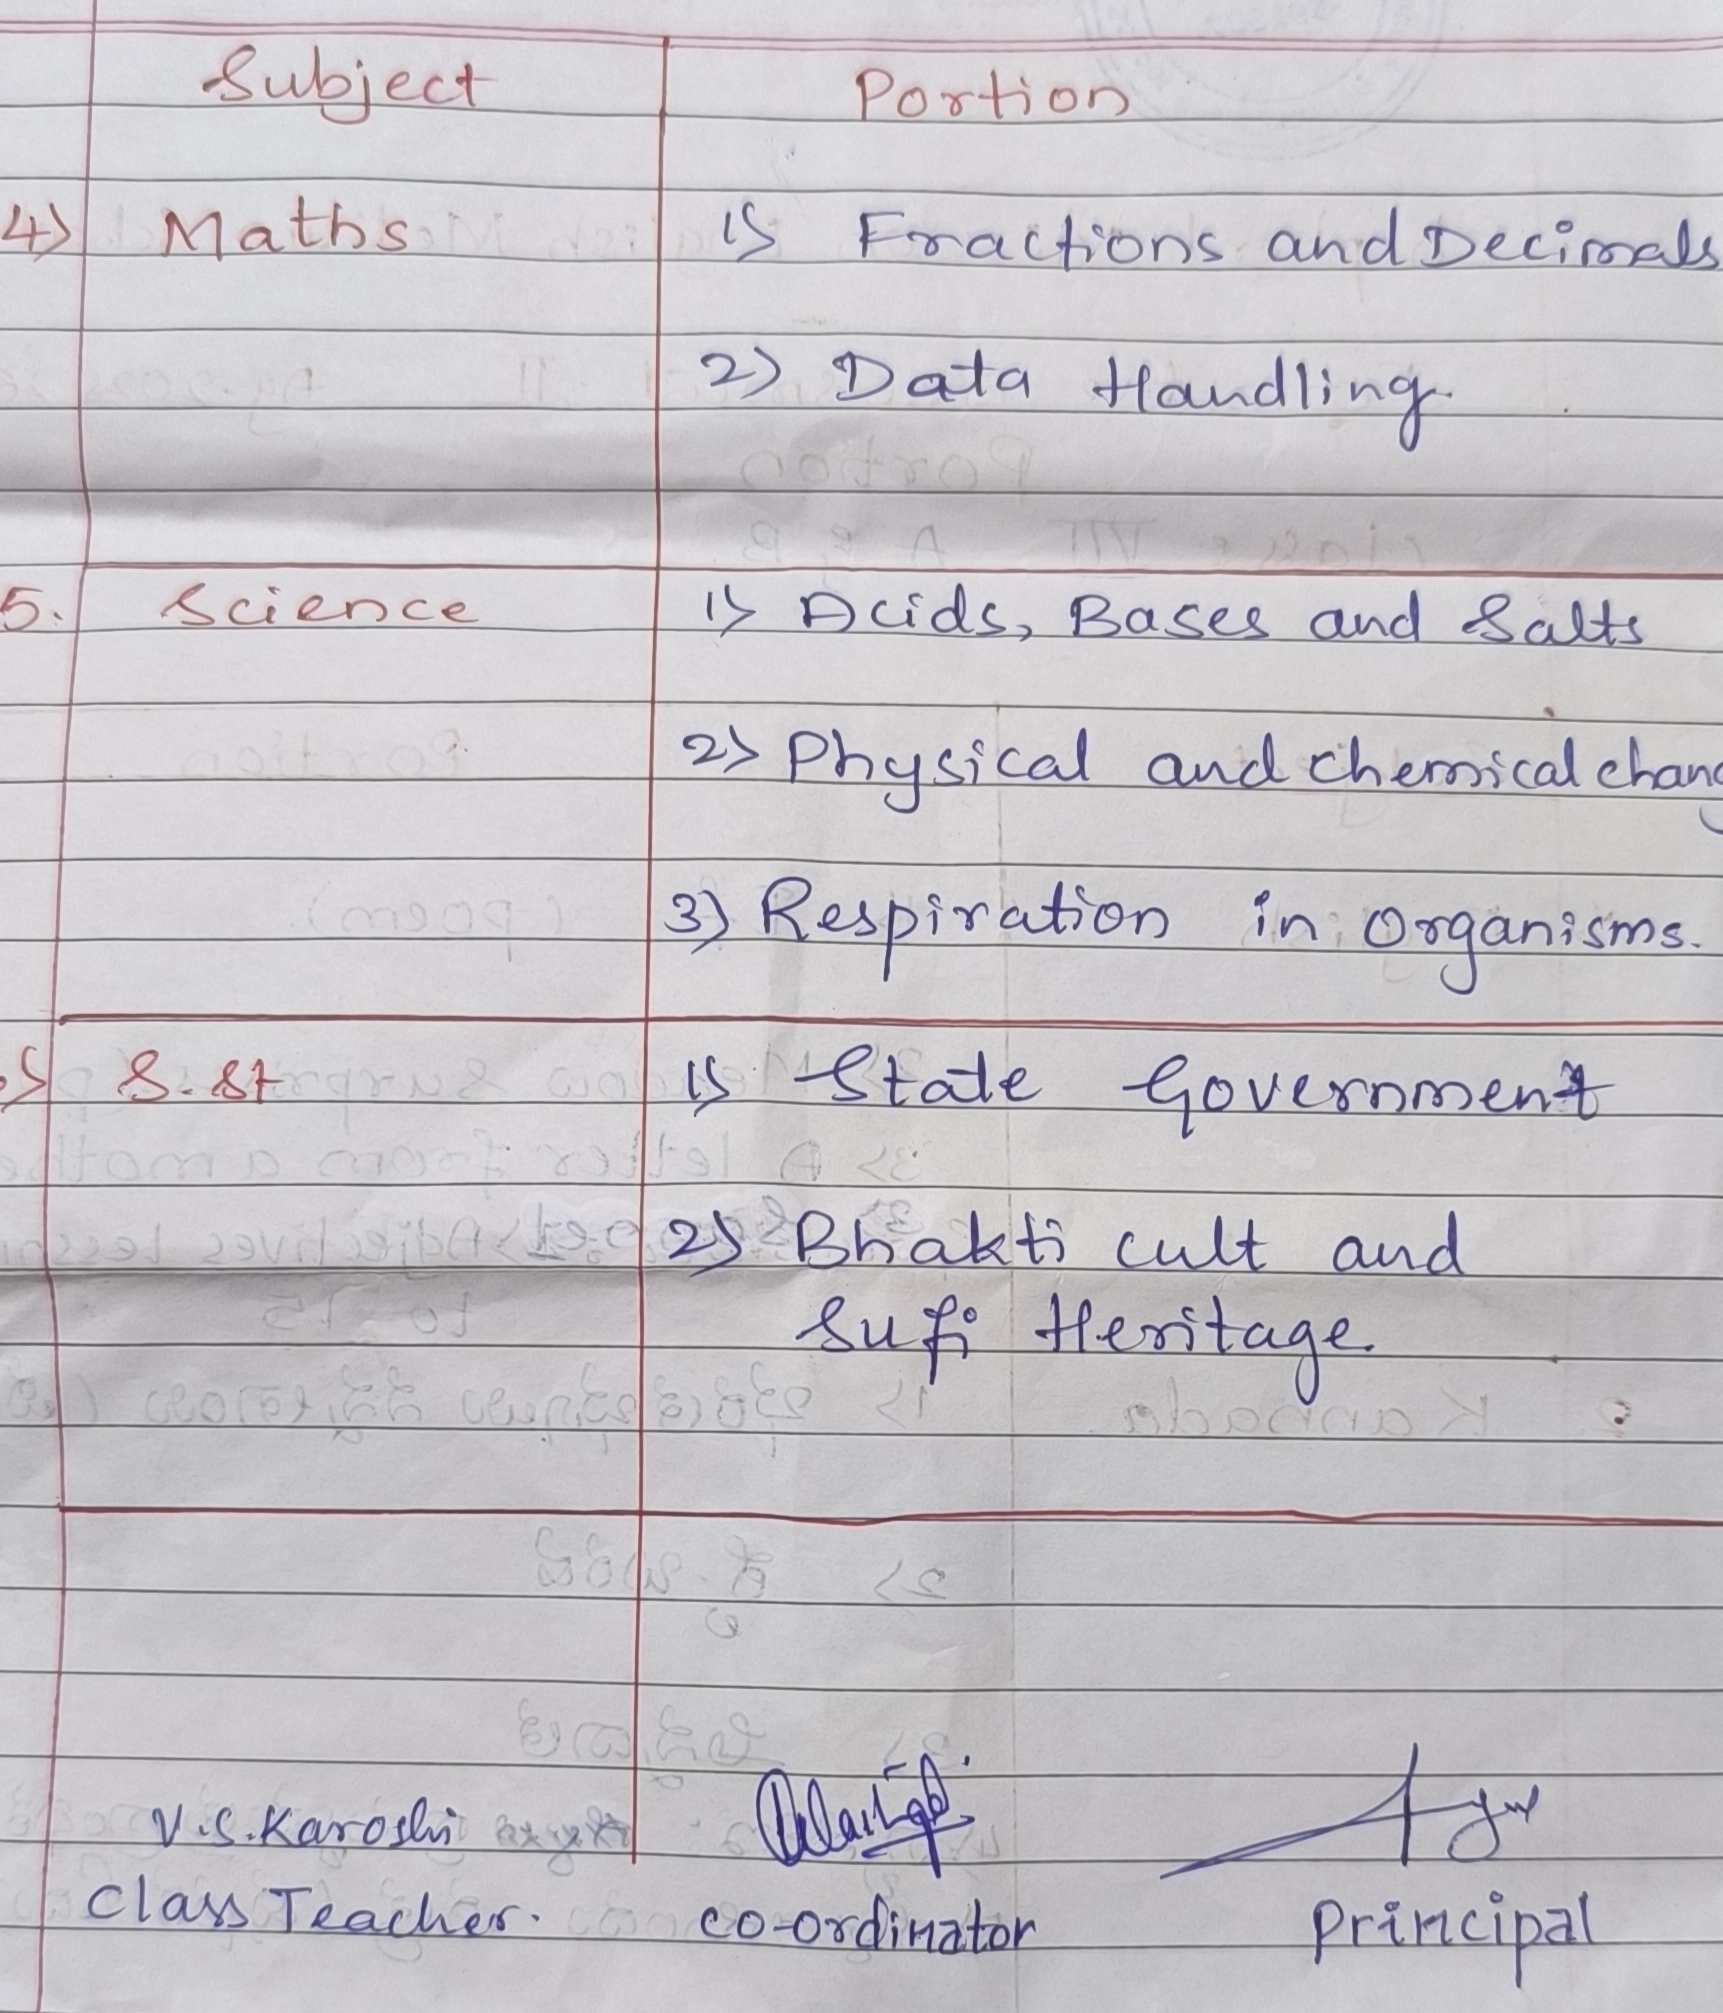 Subject Portion
4) Maths 1) Fractions and Decimals
2) Data Handling.
5. Science 1) Acids, Bases and Salts
2) Physical and chemical chang
3) Respiration in Organisms.
S. St 1) State Government
2) Bhakti cult and
Sufi Heritage.
V.S. Karoshi
Class Teacher. co-ordinator Principal